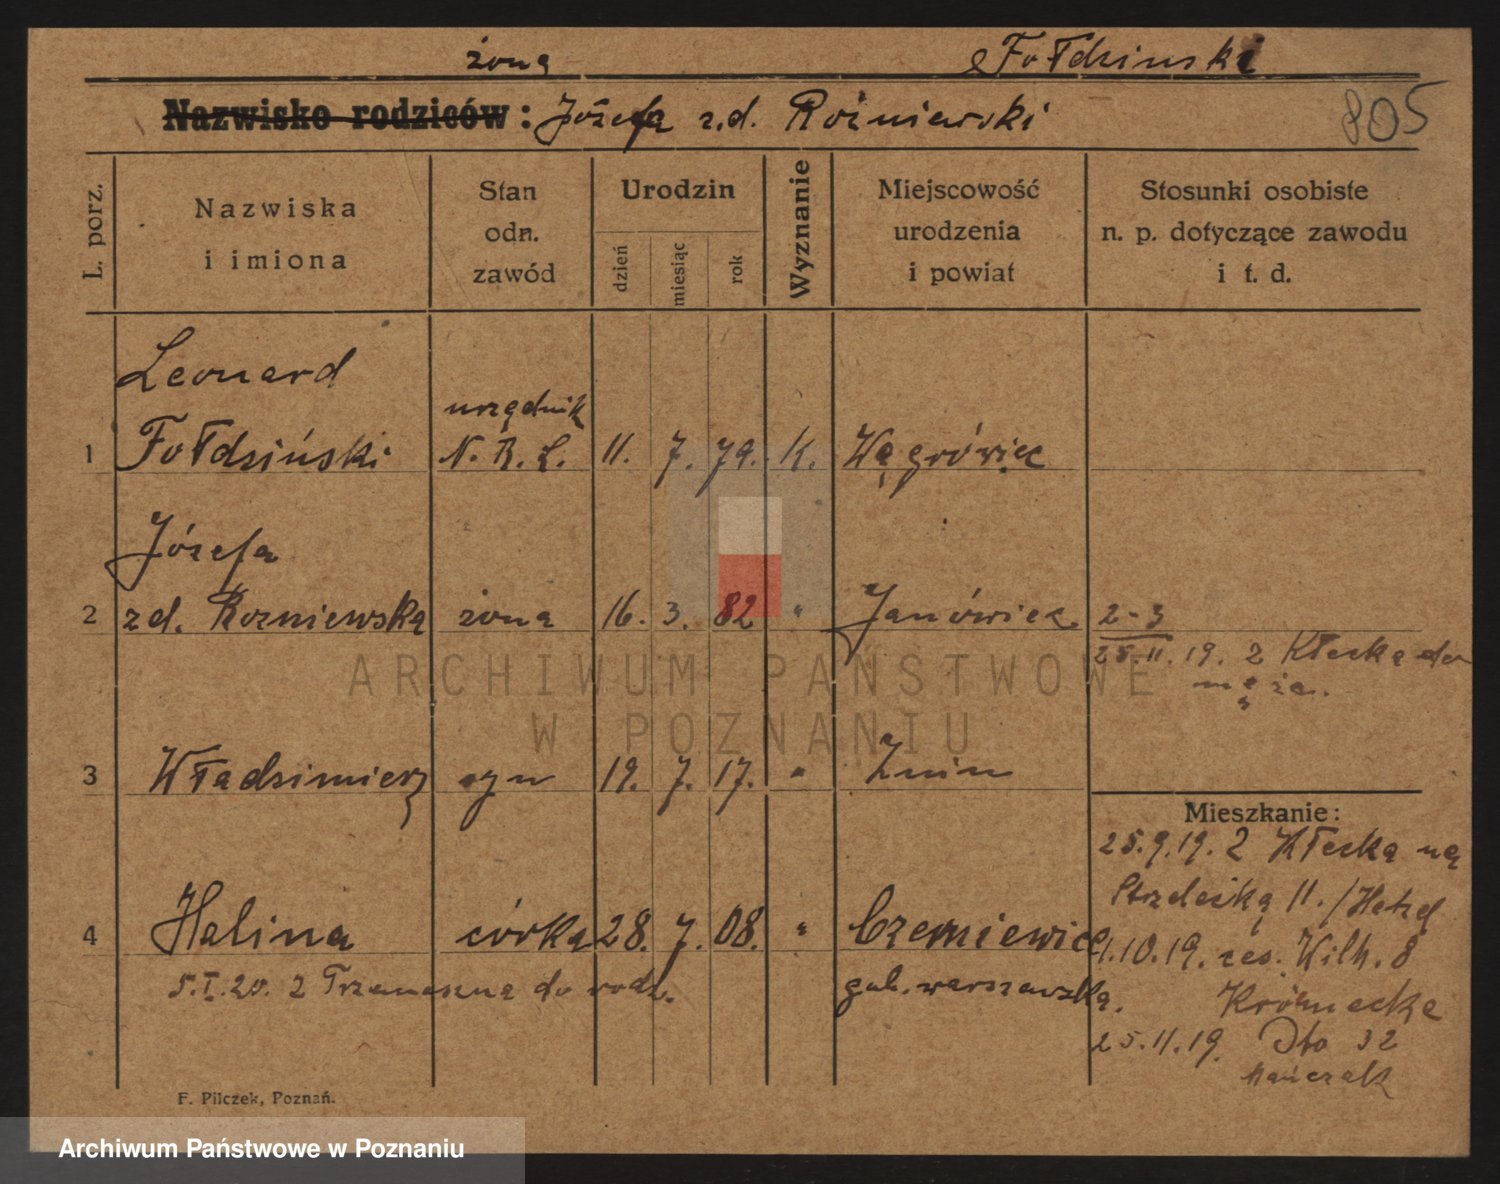 żona Fołdzinski
Nazwisko rodziców: Józefa z.d. Rożniewski 805
L. porz.
Nazwiska i imiona
Stan odn. zawód
Urodzin
dzień miesiąc rok
Wyznanie
Miejscowość urodzenia i powiat
Stosunki osobiste n. p. dotyczące zawodu i t. d.
Leonard
urzędnik
1 Fołdziński N. R. L. 11. 7. 79. K. Wągrówiec
Józefa
2 zd. Rozniewską żona 16. 3. 82 " Janówiec 2-3
25.11.19. z Kłecka do
męża.
3 Władzimierz syn 19. 7. 17. " Znin
Mieszkanie:
25.9.19. z Kłecka na
11.
4 Halina córka 28. 7. 08. " Czerniewice
1.10.19. Wilh. 8
5.I.20. z do rodz. gub. warszawska.
25.11.19. Dto 32
F. Pilczek, Poznań.
ARCHIWUM PAŃSTWOWE
W POZNANIU
Archiwum Państwowe w Poznaniu